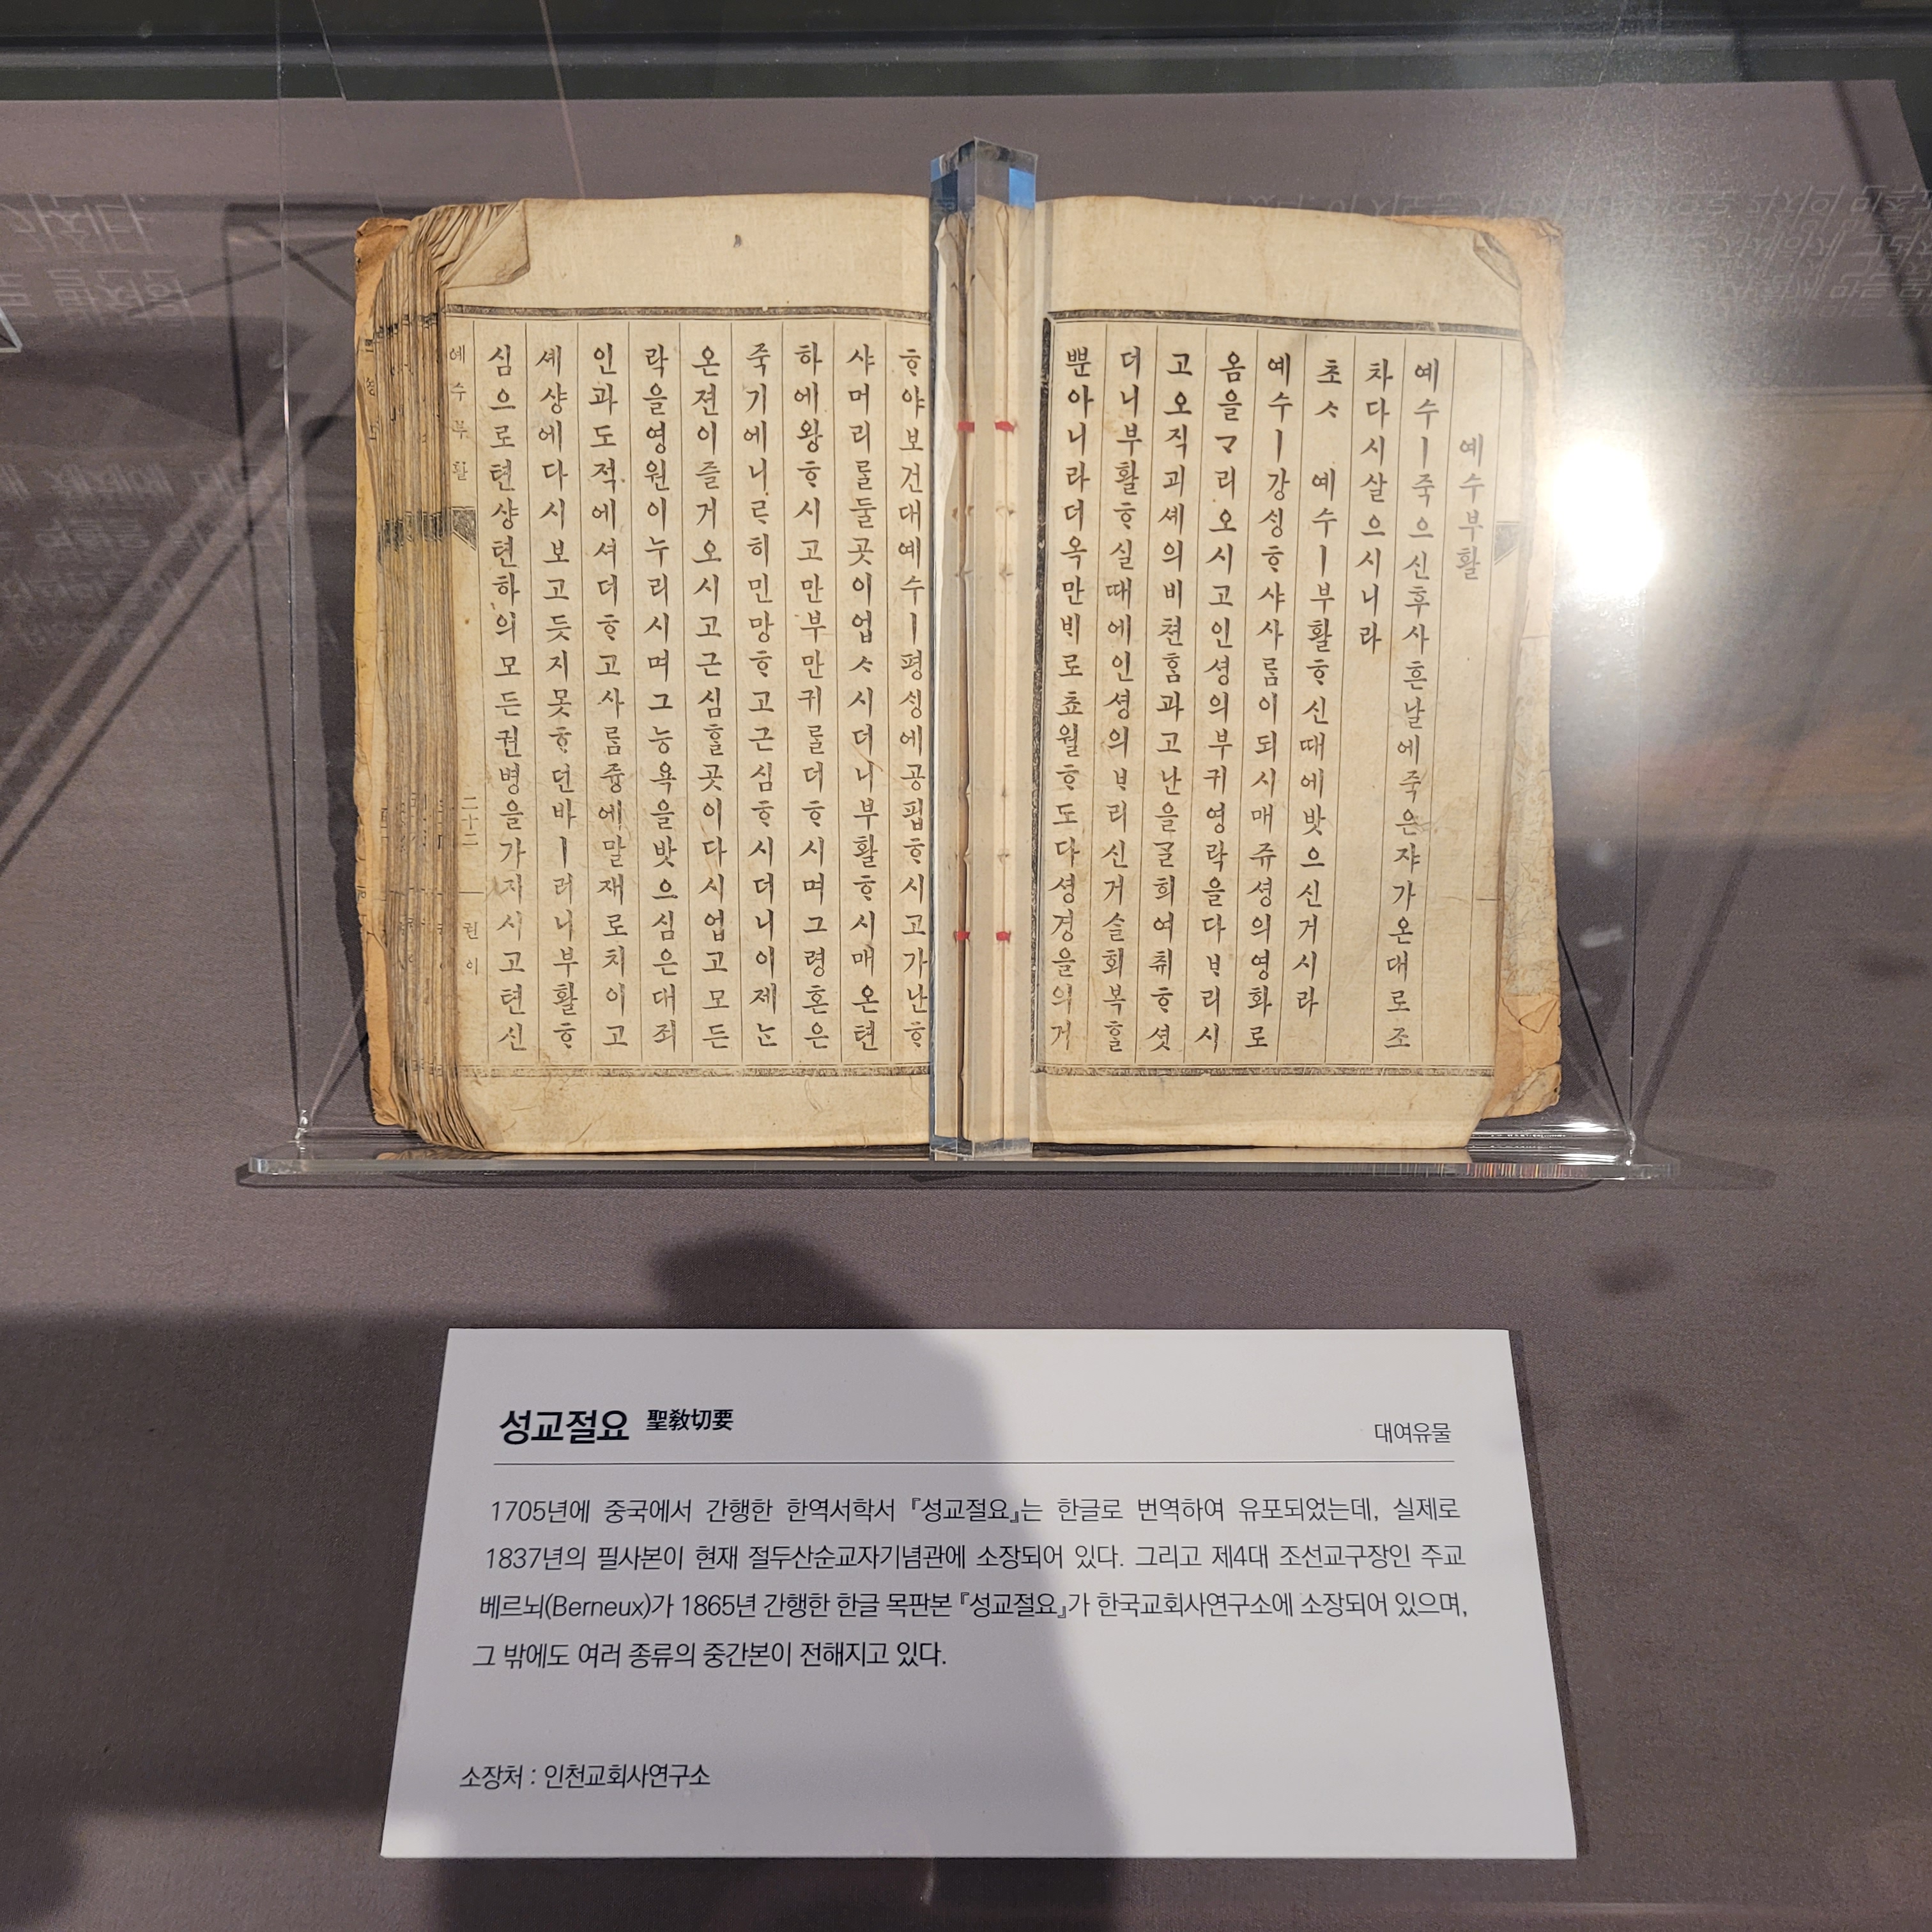 예수부활
예수ㅣ죽으신후사흔날에죽은쟈가온대로조
차다시살으시니라
초ᄉ 예수ㅣ부활ᄒᆞ신때에밧으신거시라
예수ㅣ강ᄉᆡᆼᄒᆞ샤사ᄅᆞᆷ이되시매쥬셩의영화로
옴을ᄀᆞ리오시고인셩의부귀영락을다ᄇᆞ리시
고오직괴셰의비쳔ᄒᆞᆷ과고난을ᄀᆞᆯ희여취ᄒᆞ셧
더니부활ᄒᆞ실때에인셩의ᄇᆞ리신거슬회복ᄒᆞᆯ
뿐아니라더옥만ᄇᆡ로쵸월ᄒᆞ도다셩경을의거
ᄒᆞ야보건대예수ㅣ평ᄉᆡᆼ에공핍ᄒᆞ시고가난ᄒᆞ
샤머리ᄅᆞᆯ둘곳이업ᄉ시더니부활ᄒᆞ시매온텬
하에왕ᄒᆞ시고만부만귀ᄅᆞᆯ더ᄒᆞ시며그령혼은
죽기에니ᄅᆞ히민망ᄒᆞ고근심ᄒᆞ시더니이제ᄂᆞᆫ
온젼이즐거오시고근심ᄒᆞᆯ곳이다시업고모든
락을영원이누리시며그능욕을밧으심은대죄
인과도적에셔더ᄒᆞ고사ᄅᆞᆷ즁에말재로치이고
셰샹에다시보고듯지못ᄒᆞ던바ㅣ러니부활ᄒᆞ
심으로텬샹텬하의모든권병을가지시고텬신
예수부활 二十二 권이
성교절요 聖敎切要
대여유물
1705년에 중국에서 간행한 한역서학서 『성교절요』는 한글로 번역하여 유포되었는데, 실제로
1837년의 필사본이 현재 절두산순교자기념관에 소장되어 있다. 그리고 제4대 조선교구장인 주교
베르뇌(Berneux)가 1865년 간행한 한글 목판본 『성교절요』가 한국교회사연구소에 소장되어 있으며,
그 밖에도 여러 종류의 중간본이 전해지고 있다.
소장처 : 인천교회사연구소